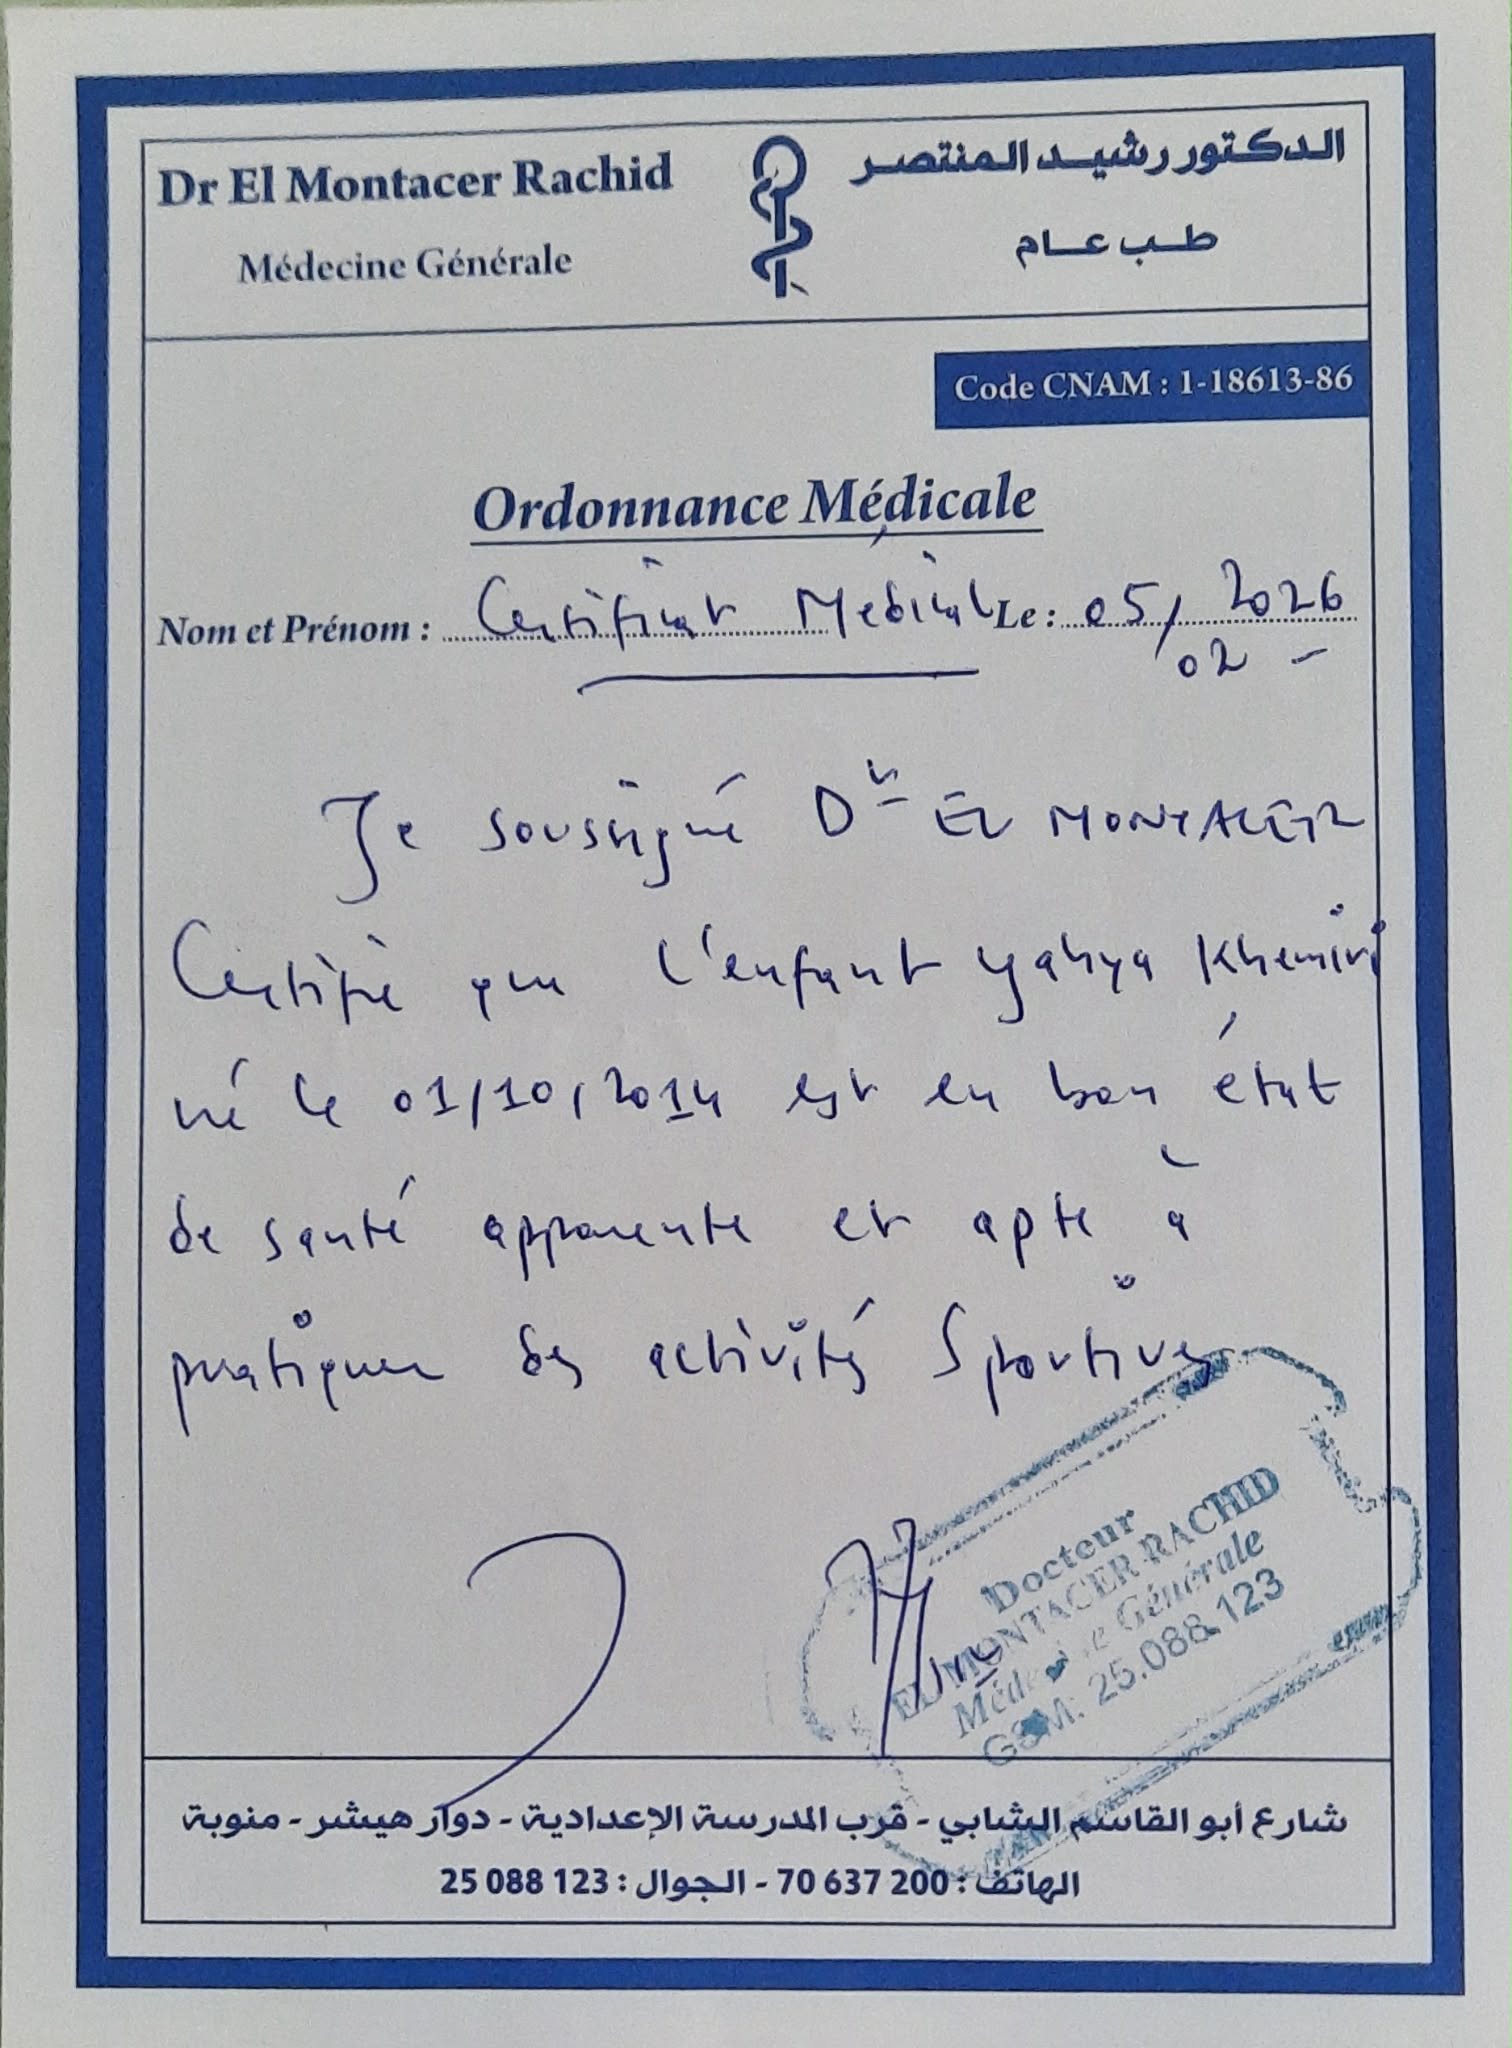 Dr El Montacer Rachid
Médecine Générale
الدكتور رشيد المنتصر
طب عام
Code CNAM : 1-18613-86
Ordonnance Médicale
Nom et Prénom : Certificat Médical Le : 05/02 2026
Je soussigné Dr EL MONTACER
Certifie que l'enfant Yahya Khemiri
né le 01/10/2014 est en bon état
de santé apparente et apte à
pratiquer des activités Sportives
Docteur
EL MONTACER RACHID
Médecine Générale
GSM: 25.088.123
شارع أبو القاسم الشابي - قرب المدرسة الإعدادية - دوار هيشر - منوبة
الهاتف : 200 637 70 - الجوال : 123 088 25